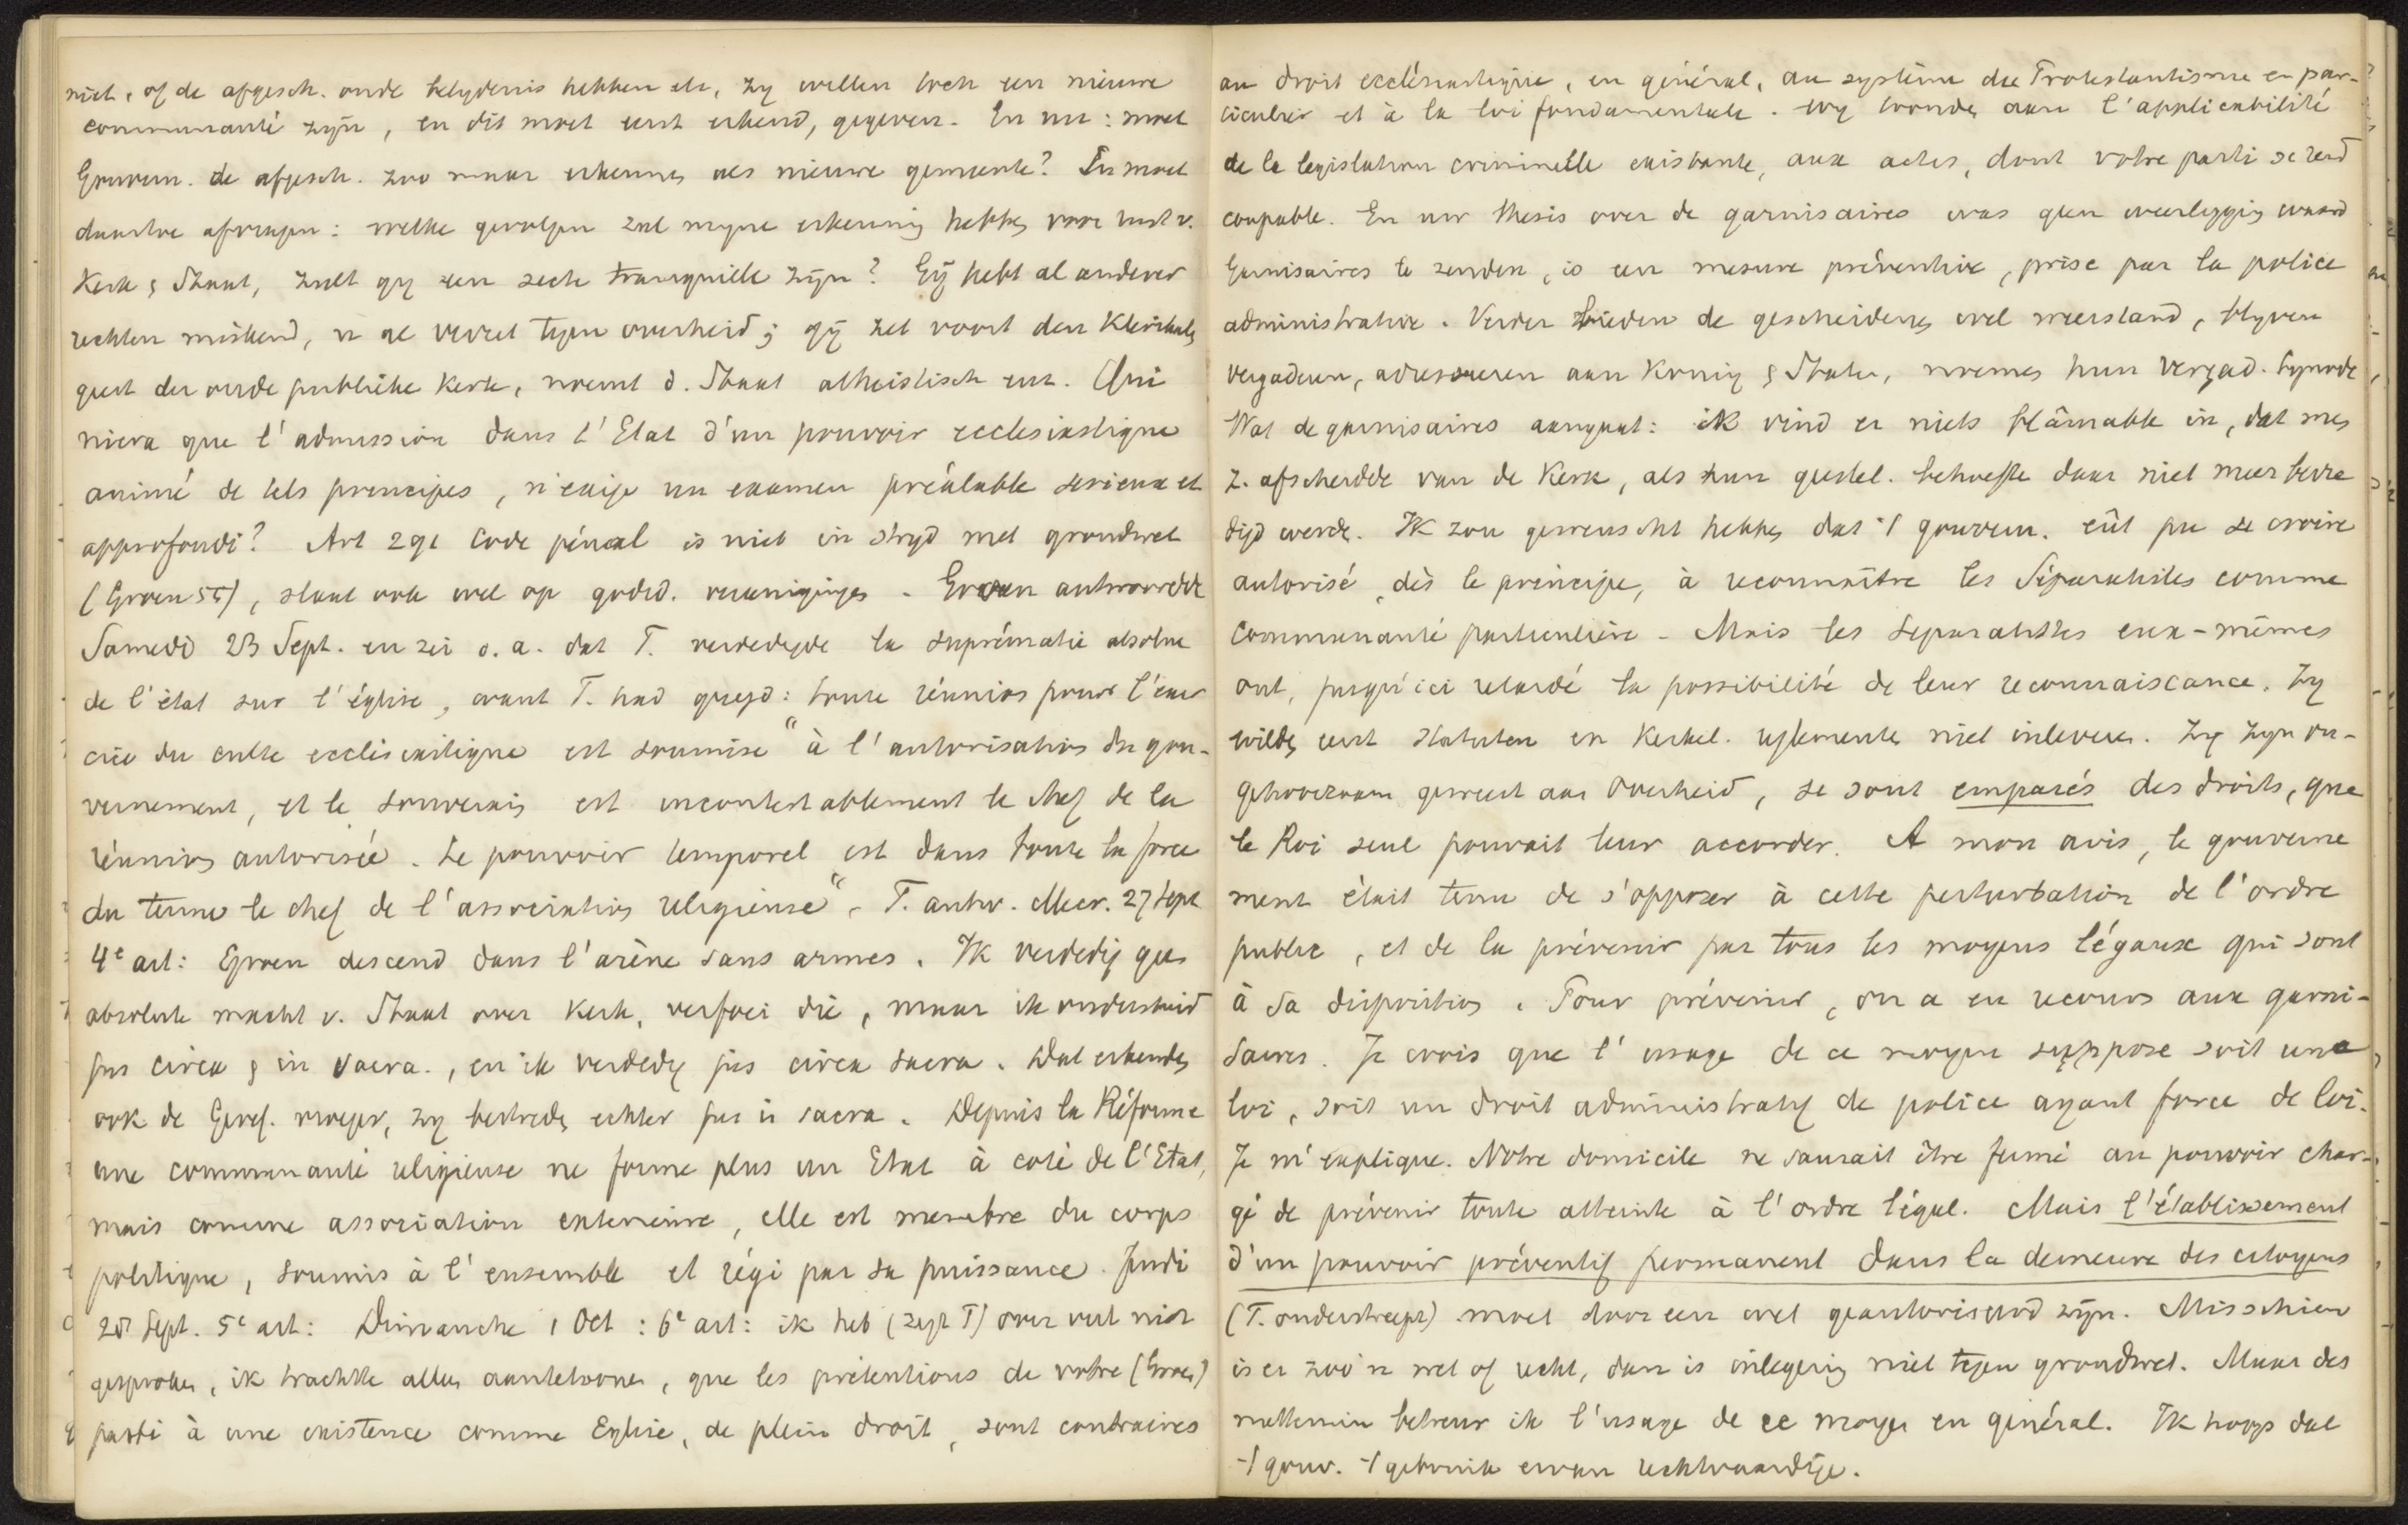 niet, of de afgesch. oude belydenis hebben etc, zy willen toch een nieuwe
communauté zijn, en dit moet eerst erkend, gegeven. En nu: moet
Gouvern. de afgesch. zoo maar erkennen als nieuwe gemeente? En moet
daartoe afvragen: welke gevolgen zal myne erkenning hebben voor rust v.
Kerk & Staat, zult gy een secte tranquille zijn? Gij hebt al anderer
rechten miskend, u al verzet tegen overheid; gij zet voort den Klerikalen
geest der oude publieke Kerk, noemt d. Staat atheistisch enz. Qui
niera que l'admission dans l'Etat d'un pouvoir ecclésiastique
animé de tels principes, n'exige un examen préalable serieux et
approfondi? Art 291 Code pénal is niet in stryd met grondwet
(Groen 55), slaat ook wel op godsd. vereenigingen. Groen antwoordde
Samedi 23 Sept. en zei o.a. dat T. verdedigde la suprématie absolue
de l'état sur l'église, want T. had gezegd: toute réunion pour l'exer
cice du culte ecclésiastique est soumise "à l'autorisation du gou-
vernement, et le souverain est incontestablement le chef de la
réunion autorisée. Le pouvoir temporel est dans toute la force
du terme le chef de l'association religieuse". T. antw. Mecr. 27 Sept
4e art: Groen descend dans l'arène sans armes. Ik verdedig geen
absolute macht v. Staat over Kerk, verfoei die, maar ik onderscheid
jus circa & in sacra., en ik verdedig jus circa sacra. Dat erkenden
ook de Geref. vroeger, zy bestreden echter jus in sacra. Depuis la Réforme
une communauté religieuse ne forme plus un Etat à coté de l'Etat,
mais comme association exterieure, elle est membre du corps
politique, soumis à l'ensemble et régi par sa puissance. Jeudi
28 Sept. 5e art: Dimanche 1 Oct: 6e art: ik heb (zegt T) over veel niet
gesproken, ik trachtte alleen aantetoonen, que les prétentions de votre (Groen)
parti à une existence comme Eglise, de plein droit, sont contraires
au droit ecclésiastique, en général, au système du Protestantisme en par-
ticulier et à la loi fondamentale. Wy toonden aan l'applicabilité
de la legislation criminelle existante, aux actes, dont votre parti se rend
coupable. En uw thesis over de garnisaires was geen weerlegging waard
Garnisaires te zenden, is een mesure préventive, prise par la police
administrative. Verder bieden de gescheidenen wel weerstand, blyven
vergaderen, adresseeren aan Koning & Staten, noemen hun vergad. Synode
Wat de garnisaires aangaat: ik vind er niets blâmable in, dat men
z. afscheidde van de Kerk, als hun geestel. behoefte daar niet meer bevre
digd werde. Ik zou gewenscht hebben dat 't gouvern. eût pu se croire
autorisé, dès le principe, à reconnaître les Séparatistes comme
Communauté particulière. Mais les séparatistes eux-mêmes
ont, jusqu'ici retardé la possibilité de leur reconnaissance. Zy
wilden eerst statuten en Kerkel. reglementen niet inleveren. Zy zyn on-
gehoorzaam geweest aan Overheid, se sont emparés des droits, que
le Roi seul pouvait leur accorder. A mon avis, le gouverne
ment était tenu de s'opposer à cette perturbation de l'ordre
public, et de la prévenir par tous les moyens légaux qui sont
à sa disposition. Pour prévenir, on a eu recours aux garni-
saires. Je crois que l'usage de ce moyen suppose soit une
loi, soit un droit administratif de police ayant force de loi.
Je m'explique. Notre domicile ne saurait être fermé au pouvoir char-
gé de prévenir toute atteinte à l'ordre légal. Mais l'établissement
d'un pouvoir préventif permanent dans la demeure des citoyens
(T. onderstreept) moet door een wet geautoriseerd zijn. Misschien
is er zoo'n wet of recht, dan is inlegering niet tegen grondwet. Maar des
niettemin betreur ik l'usage de ce moyen en général. Ik hoop dat
't gouv. 't gebruik ervan rechtvaardige.